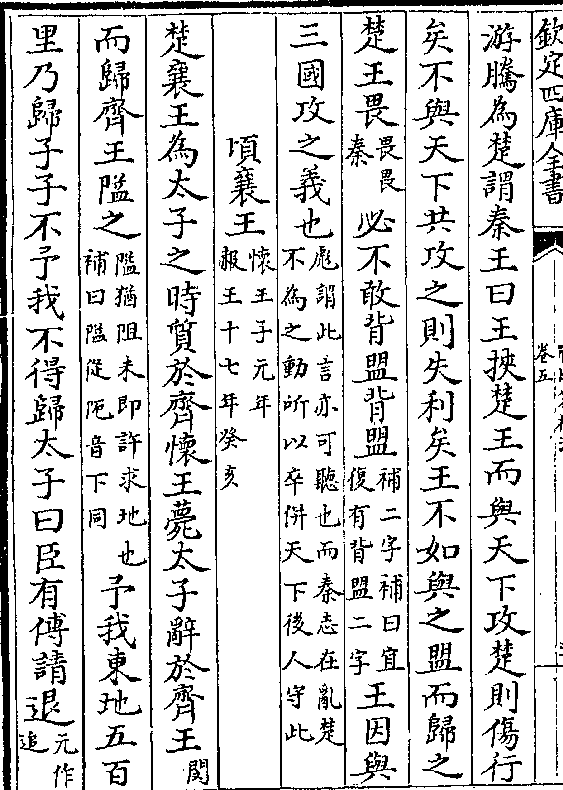 欽定四庫全書
卷五
游騰為楚謂秦王曰王挾楚王而與天下攻楚則傷行
矣不與天下共攻之則失利矣王不如與之盟而歸之
楚王畏畏畏秦必不敢背盟背盟補二字補曰宜復有背盟二字王因與
三國攻之義也彪謂此言亦可聽也而秦志在亂楚不為之動所以卒併天下後人守此
頃襄王懷王子元年赧王十七年癸亥
楚襄王為太子之時質於齊懷王薨太子辭於齊王閔
而歸齊王隘之隘猶阻未即許求地也補曰隘從阨音下同予我東地五百
里乃歸子子不予我不得歸太子曰臣有傅請退元作追